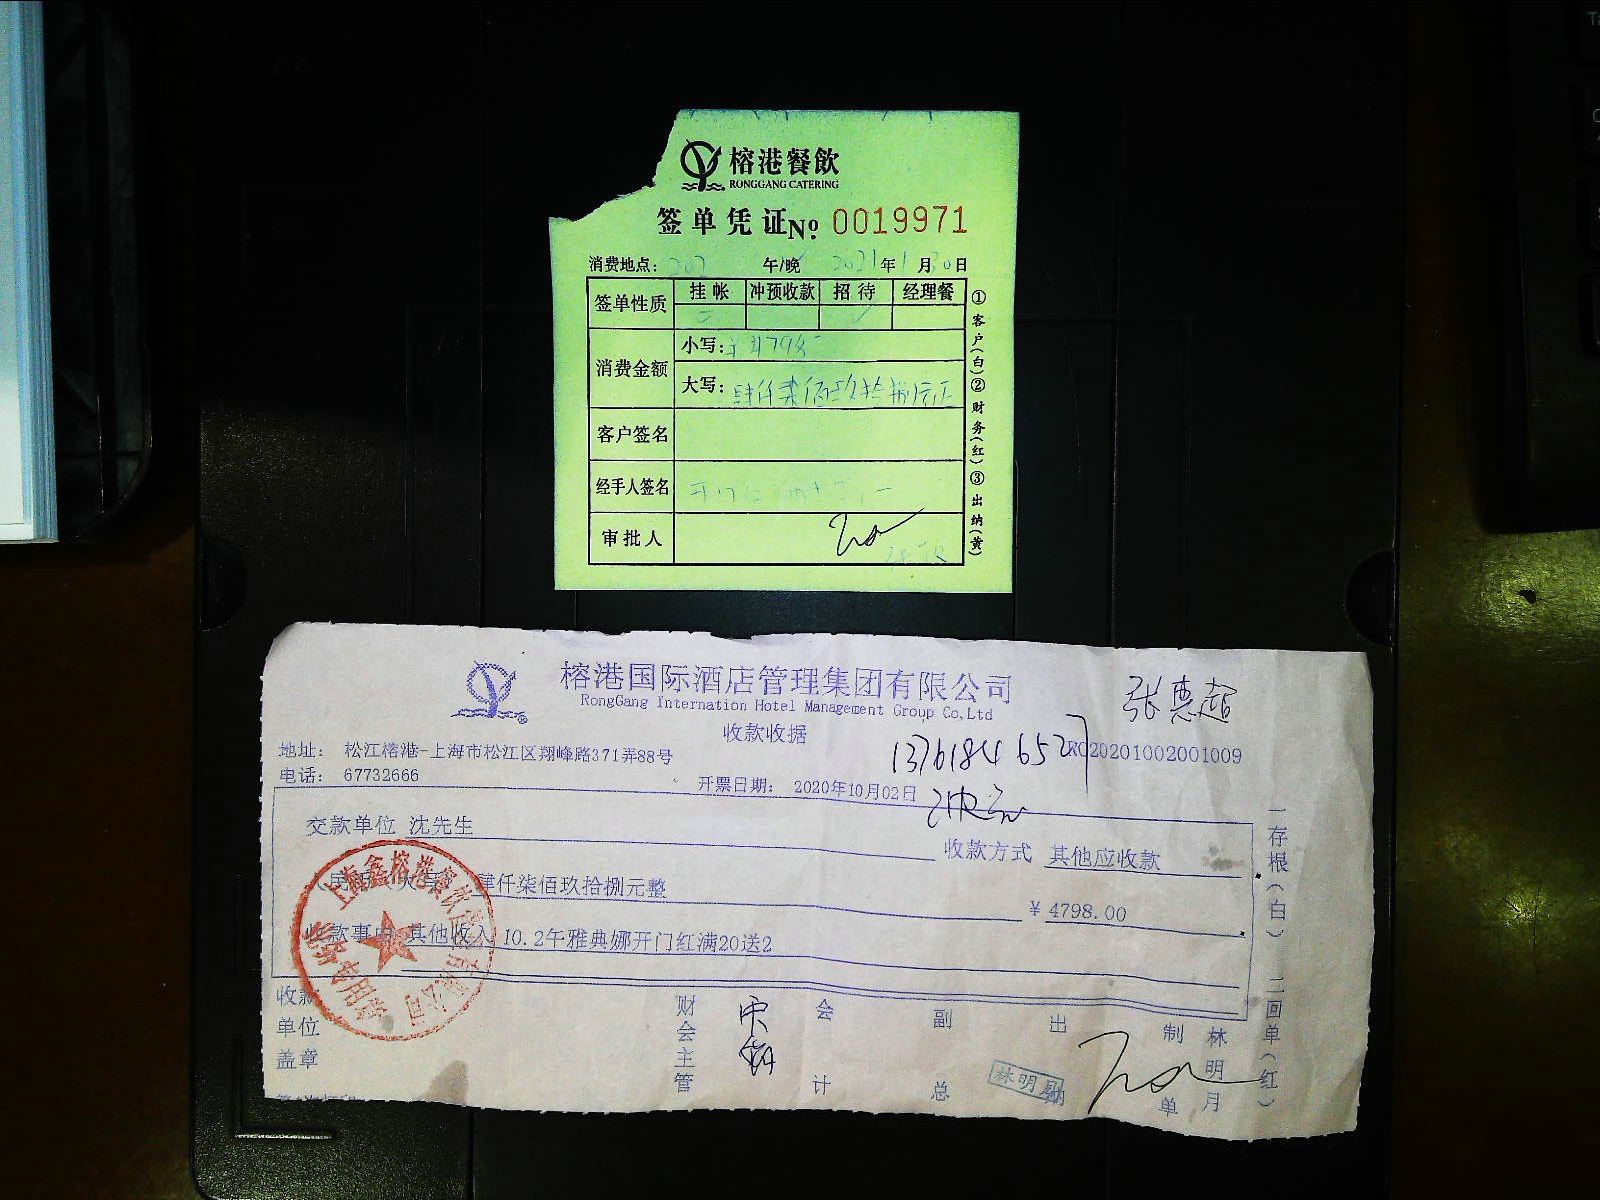 榕港餐飲
RONGGANG CATERING
签单凭证 No. 0019971
消费地点: 202 午/晚 2021年1月30日
签单性质 挂帐 冲预收款 招待 经理餐
消费金额 小写: ¥4798
大写: 肆仟柒佰玖拾捌元正
客户签名
经手人签名
审批人
①客户(白)②财务(红)③出纳(黄)
榕港国际酒店管理集团有限公司
RongGang International Hotel Management Group Co,Ltd
张惠超
收款收据
地址: 松江榕港-上海市松江区翔峰路371弄88号
13761846527
20201002001009
电话: 67732666
开票日期: 2020年10月02日
交款单位 沈先生
收款方式 其他应收款
肆仟柒佰玖拾捌元整
¥ 4798.00
收款事由 其他收入 10.2午雅典娜开门红满20送2
上海鑫榕港餐饮管理有限公司
财务专用章
收款单位盖章
财会主管
会计
副总
出纳
制单
林明月
林明月
一存根(白) 二回单(红)